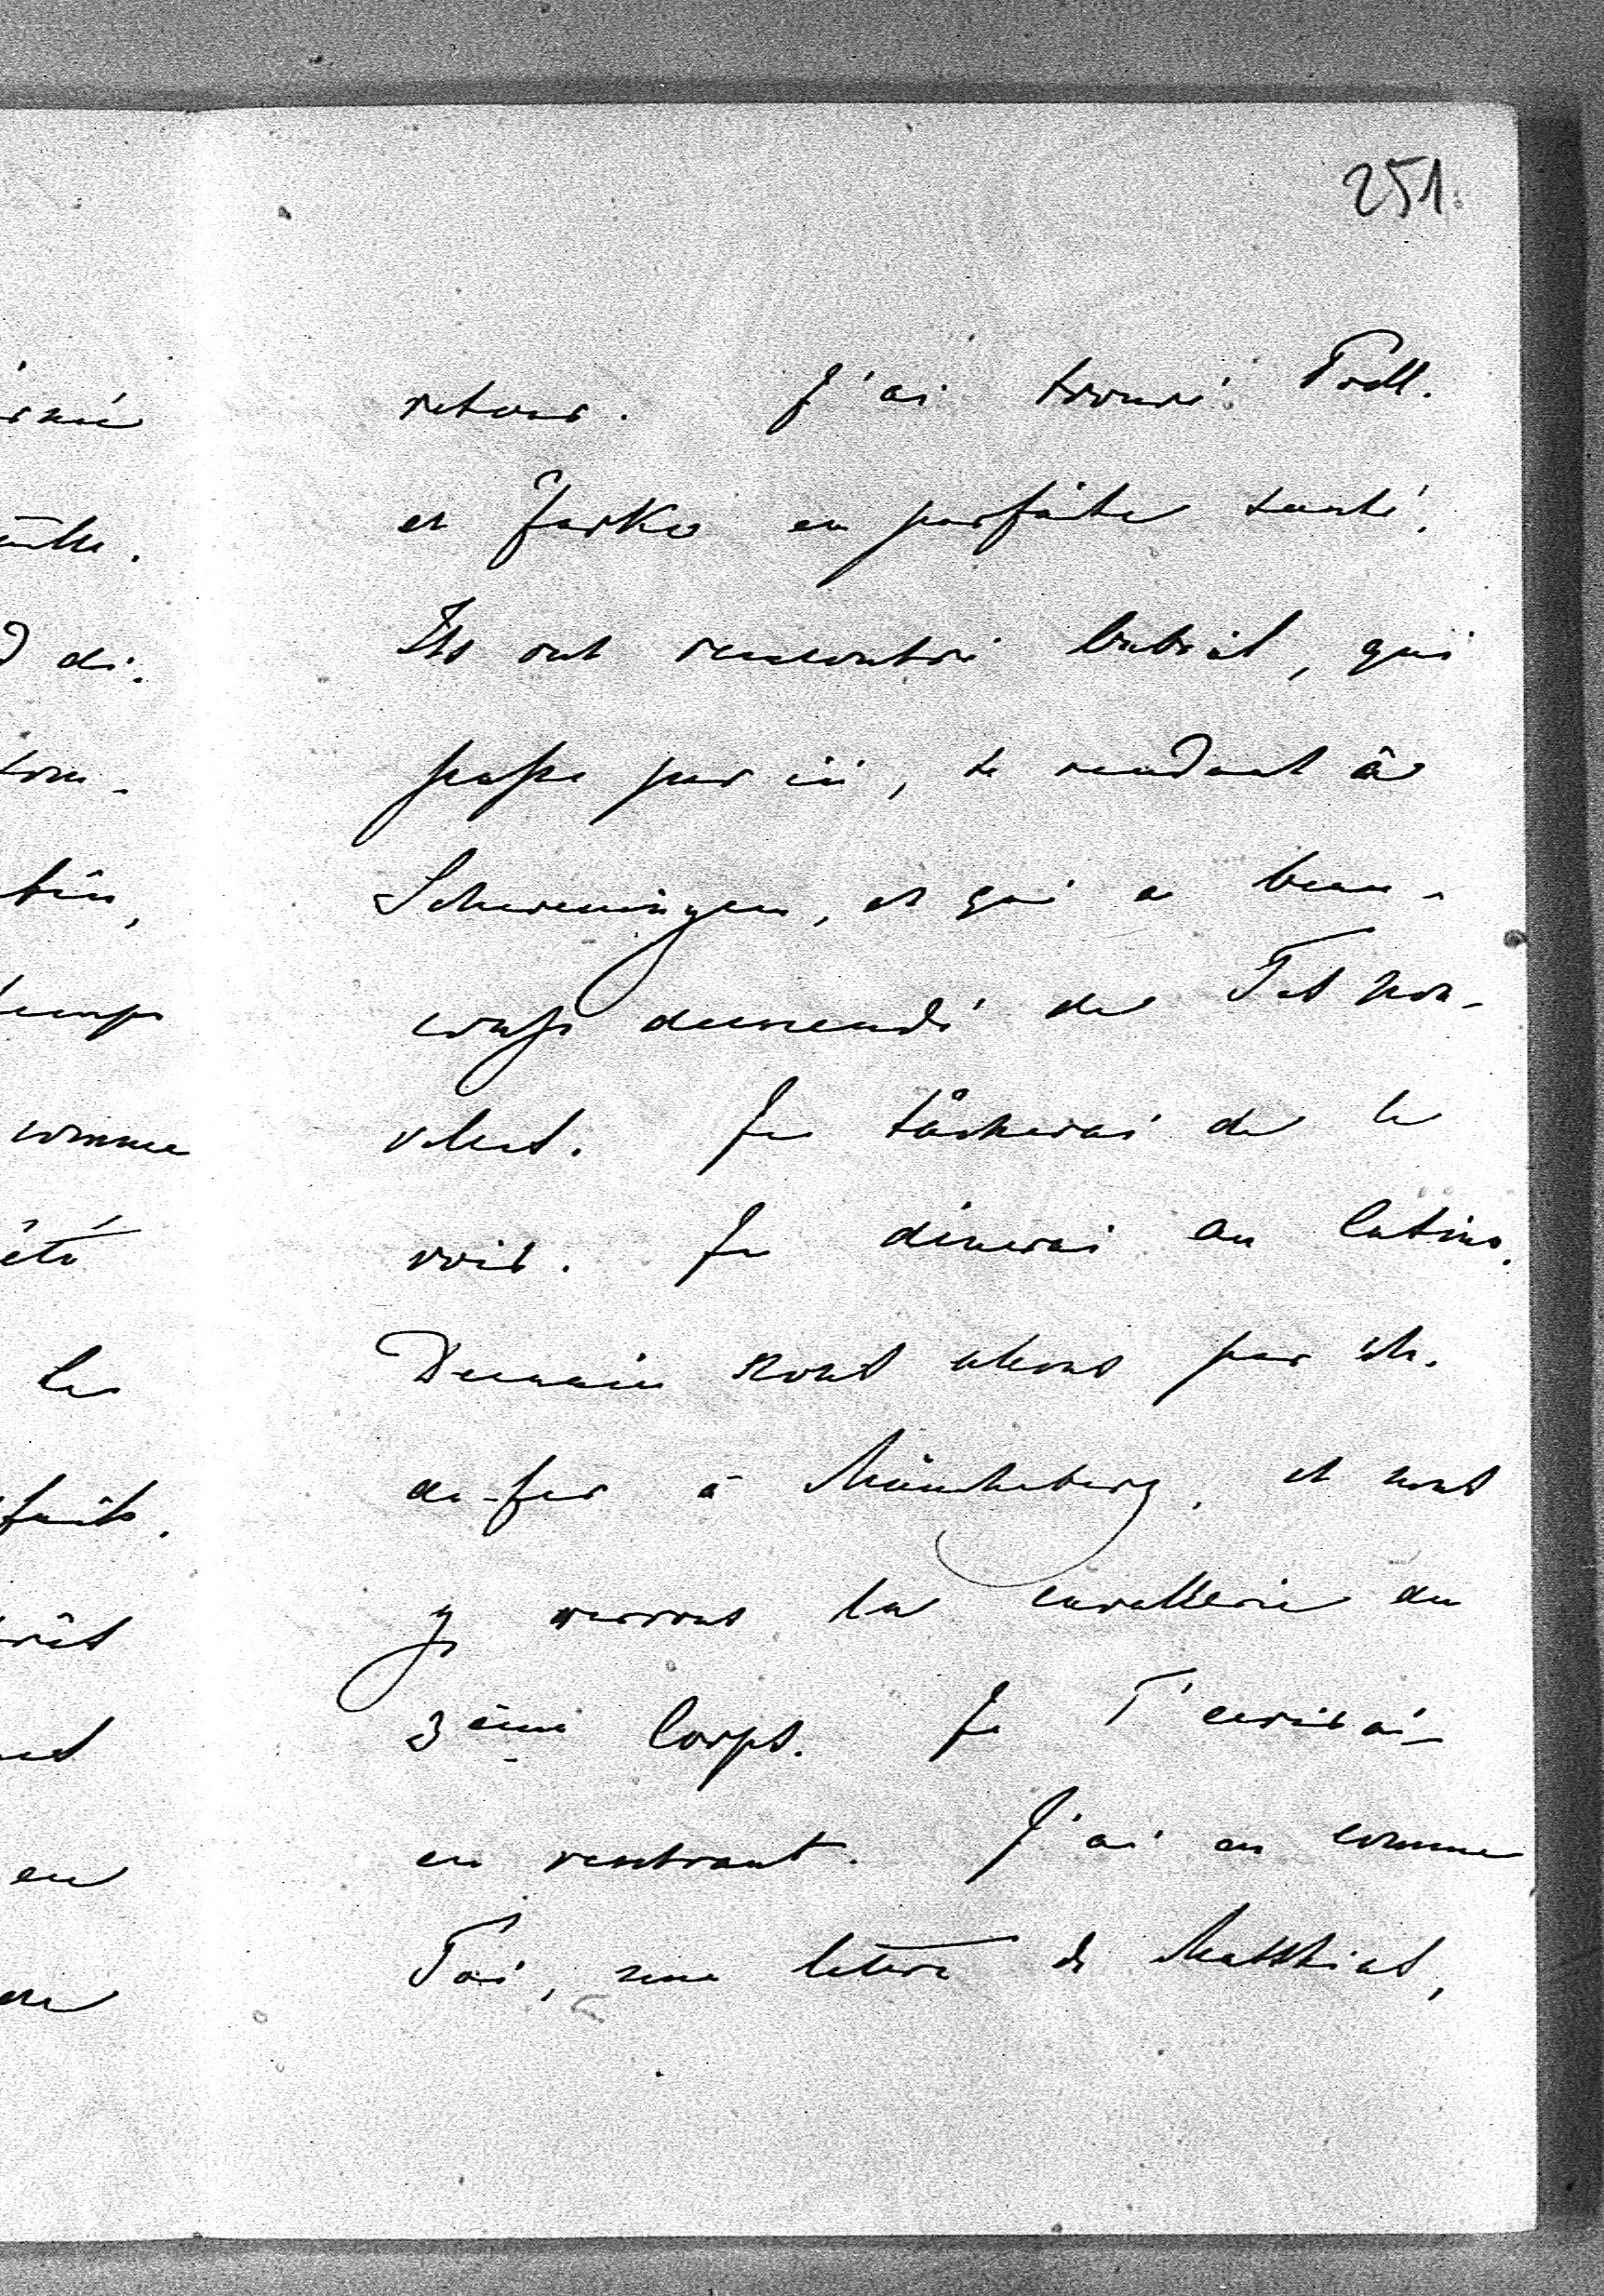 251.
retour. J'ai trouvé Troll.
et Jasko en parfaite santé.
Ils ont rencontré Gabriel, qui
passe par ici, se rendant à
Scheveningen, et qui a beau-
coup demandé de Tes nou-
velles. Je tâcherai de le
voir. Je dinerai au Casino.
Demain nous allons par ch.
de-fer à Müncheberg, et nous
y verrons la cavallerie du
3ème Corps. Je T'ecrirai
en rentrant. J'ai eu comme
Toi, une lettre de Matthias,
comme
été
les
en